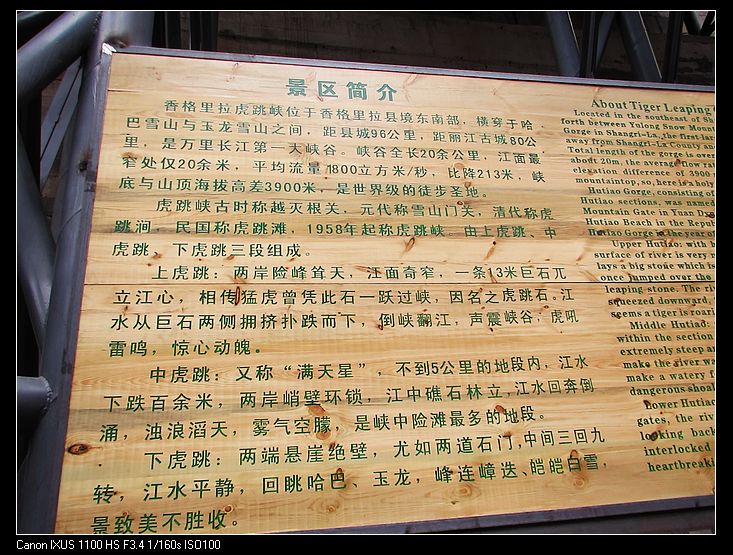 景区简介
香格里拉虎跳峡位于香格里拉县境东南部，横穿于哈
巴雪山与玉龙雪山之间，距县城96公里，距丽江古城80公
里，是万里长江第一大峡谷。峡谷全长20余公里，江面最
窄处仅20余米，平均流量1800立方米/秒，比降213米，峡
底与山顶海拔高差3900米，是世界级的徒步圣地。
虎跳峡古时称越灭根关，元代称雪山门关，清代称虎
跳涧，民国称虎跳滩，1958年起称虎跳峡。由上虎跳、中
虎跳、下虎跳三段组成。
上虎跳：两岸险峰耸天，江面奇窄，一条13米巨石兀
立江心，相传猛虎曾凭此石一跃过峡，因名之虎跳石。江
水从巨石两侧拥挤扑跌而下，倒峡翻江，声震峡谷，虎吼
雷鸣，惊心动魄。
中虎跳：又称“满天星”，不到5公里的地段内，江水
下跌百余米，两岸峭壁环锁，江中礁石林立，江水回奔倒
涌，浊浪滔天，雾气空朦，是峡中险滩最多的地段。
下虎跳：两端悬崖绝壁，尤如两道石门，中间三回九
转，江水平静，回眺哈巴、玉龙，峰连嶂迭、皑皑白雪，
景致美不胜收。
About Tiger Leaping
Located in the southeast of
forth between Yulong Snow
Gorge in Shangri-La, the first
away from Shangri-La County
total length of the gorge is over
about 20m, the average flow
elevation difference of 3900
mountaintop, so, here is a holy
Hutiao Gorge, consisting of
Hutiao sections, was named
Mountain Gate in Yuan
Hutiao Beach in the
Hutiao Gorge in the year of
Upper Hutiao: with
surface of river is very
lays a big stone which is
once jumped over the
leaping stone. The
squeezed downward,
seems a tiger is
Middle Hutiao:
within the section
extremely steep
make the river
make a watery
dangerous
Lower
gates, the
looking back
interlocked
Canon IXUS 1100 HS F3.4 1/160s ISO100